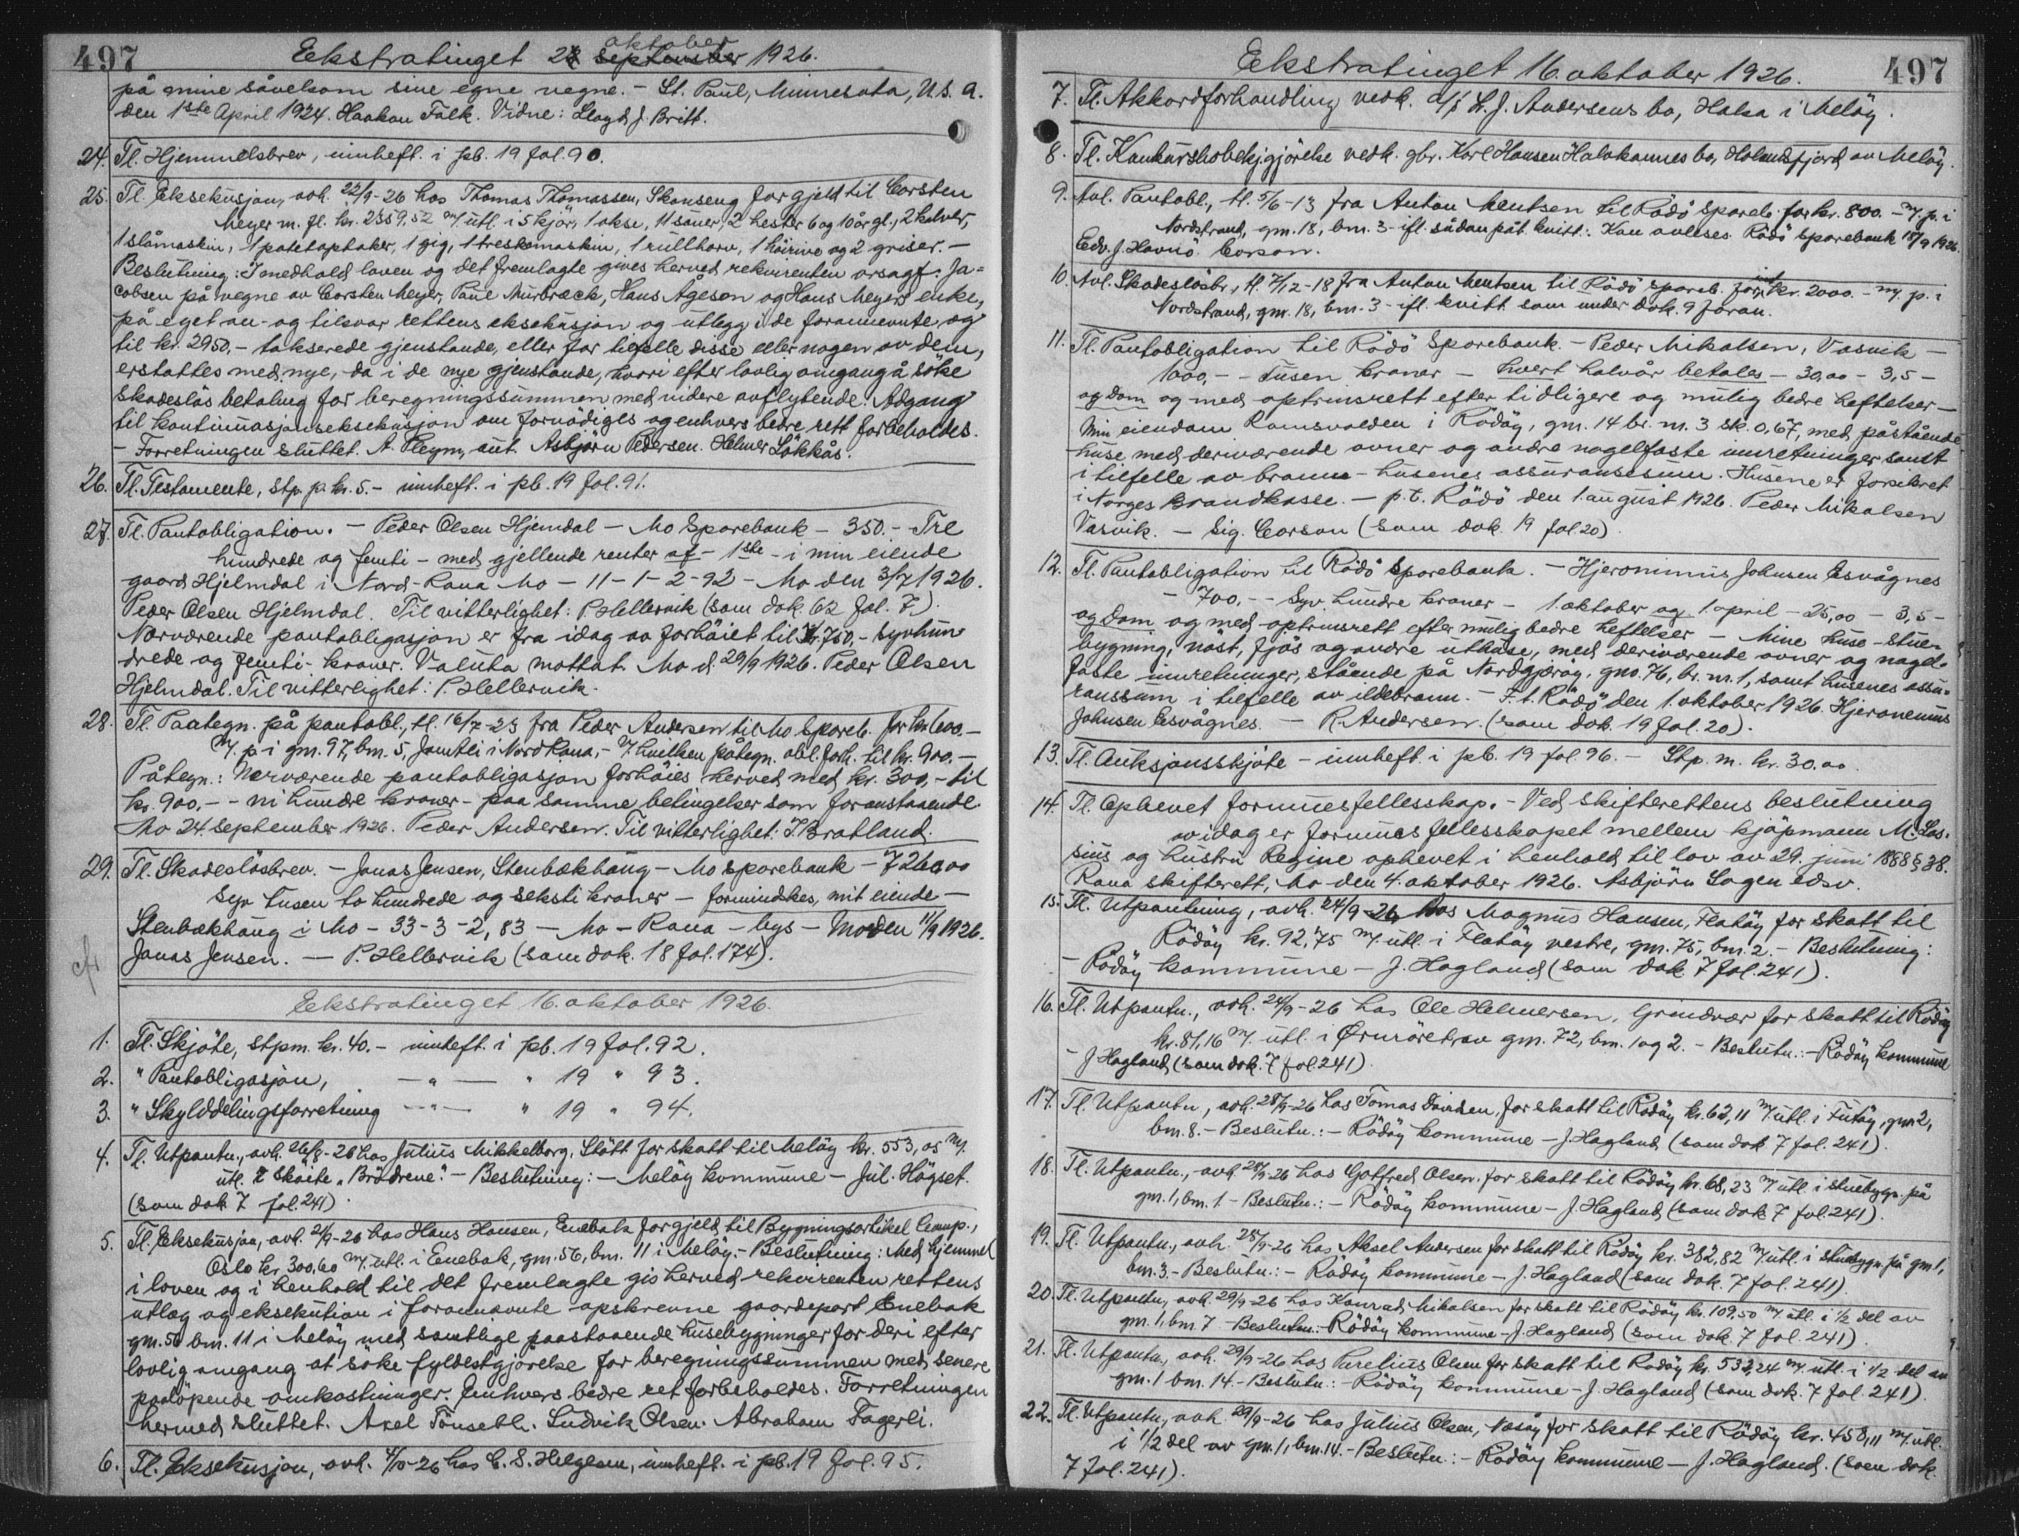 497
Ekstratinget 2 oktober 1926.
på mine såvelsom sine egne vegne. – St. Paul, Minnesota, U.S.A.
den 1ste April 1924. Haakon Falk. Vidne: Lloyd J. Britt.
24. Tl. Hjemmelsbrev, innheft. i pb. 19 fol. 90.
25. Tl. Eksekusjon, avh. 22/9-26 hos Thomas Thomassen, Skonseng for gjeld til Carsten
Meyer m. fl. kr. 2359,52 m/ utl. i 5 kjör, 1 okse, 11 sauer, 2 hester 6 og 10 år gl., 2 kalver,
1 slåmaskin, 1 potetoptaker, 1 gig, 1 treskemaskin, 1 rullharv, 1 höirive og 2 griser. –
Beslutning: I medhold loven og det fremlagte gives herved rekvirenten orsagf. Ja-
cobsen på vegne av Carsten Meyer, Paul Murbræck, Hans Ageson og Hans Meyers enke,
på eget an- og tilsvar rettens eksekusjon og utlegg i de forannevnte og
til kr. 2950,- takserede gjenstande, eller for tilfelle disse eller nogen av dem,
erstattes med nye, da i de nye gjenstande, hvori efter lovlig omgang å söke
skadeslös betaling for beregningssummen med videre avflytende. Adgang
til kontinuasjonseksekusjon om fornödiges og enhvers bedre rett forbeholdes.
– Forretningen sluttet. A. Pleym, aut. Asbjörn Pedersen. Helmer Lökkås.
26. Tl. Testamente, stp. p. kr. 5.- innheft. i pb. 19 fol. 91.
27. Tl. Pantobligation. – Peder Olsen Hjemdal – Mo Sparebank – 350.- Tre
hundrede og femti – med gjellende renter af – 1ste – i min eiende
gaard Hjelmdal i Nord-Rana Mo – 11-1-2-92 – Mo den 3/7 1926.
Peder Olsen Hjelmdal. Til vitterlighet: P. Hellervik (som dok. 62 fol. 7.).
Nærværende pantobligasjon er fra idag av forhöiet til kr. 750,- syvhun
drede og femti- kroner. Valuta mottat. Mo d. 29/9 1926. Peder Olsen
Hjelmdal. Til vitterlighet: P. Hellervik.
28. Tl. Paategn. på pantobl., tl. 16/7-23 fra Peder Andersen til Mo Spareb. for kr. 600.-
m/ p. i gm. 97, bm. 5, Jamtli i Nord Rana,- hvilken påtegn. obl. forh. til kr. 900.-
Påtegn.: Nærværende pantobligasjon forhöies herved med kr. 300,- til
kr. 900,- - ni hundre kroner – paa samme betingelser som foranstaaende
Mo 24 september 1926. Peder Andersen. Til vitterlighet: J. Bratland.
29. Tl. Skadeslösbrev. – Jonas Jensen, Stenbækhaug – Mo sparebank – 7260,00
Syv tusen to hundrede og seksti kroner – formindskes, mit eiende –
Stenbækhaug i Mo – 33-3-2,83 – Mo – Rana – bygs – Mo den 11/9 1926.
Jonas Jensen. – P. Hellervik (som dok. 18 fol. 174).
Ekstratinget 16. oktober 1926.
1. Tl. Skjöte, stpm. kr. 40.- innheft. i pb. 19 fol. 92.
2. " Pantobligasjon, – " – " 19 " 93.
3. " Skylddelingsforretning – " – " 19 " 94.
4. Tl. Utpantn., avh. 26/8-26 hos Julius Mikkelborg, Stött for skatt til Meløy kr. 553,05 m/
utl. i sköite "Brödrene". – Beslutning: – Meløy kommune – Jul. Högset.
(som dok 7 fol. 241)
5. Tl. Eksekusjon, avh. 21/9-26 hos Hans Hansen, Enebak for gjeld til Bygningsartikel Comp.,
Oslo kr. 300,60 m/ utl. i Enebak, gm. 56, bm. 11 i Meløy. – Beslutning: Med hjemmel
i loven og i henhold til det fremlagte gis herved rekvirenten rettens
utlæg og eksekution i forannævnte opskrevne gaardepart Enebak
gm. 56 bm. 11 i Meløy med samtlige paastaaende husebygninger for deri efter
lovlig omgang at söke fyldestgjörelse for beregningssummen med senere
paalöpende omkostninger. Enhvers bedre ret forbeholdes. Forretningen
hermed sluttet. Axel Tönseth. Ludvik Olsen. Abraham Fagerli.
6. Tl. Eksekusjon, avh. 4/10-26 hos C. S. Helgesen, innheft. i pb. 19 fol. 95.
Ekstratinget 16. oktober 1926.
497
7. Tl. Akkordforhandling vedk. a/s L. J. Andersens bo, Halsa i Meløy.
8. Tl. Konkursbobekjgjörelse vedk. gbr. Karl Hansen Halvkannes bo, Holandsfjord av Meløy.
9. Avl. Pantobl., tl. 5/6-13 fra Anton Mentsen til Rödö Spareb. for kr. 800.- m/ p. i
Nordstrand, gm. 18, bm. 3 ifl. sådan påt. kvitt.: Kan avleses Rödö Sparebank 18/9 1926.
Edv. J. Havnö Corson.
10. Avl. Skadeslösbr., tl. 7/12-18 fra Anton Mentsen til Rödö spareb. for kr. 2000.- m/ p. i
Nordstrand, gm. 18, bm. 3 – ifl. kvitt. som under dok. 9 foran.
11. Tl. Pantobligation til Rödö Sparebank. – Peder Mikalsen, Vasvik –
1000,- - Tusen kroner – hvert halvår betales – 30,00 – 3,5 –
og dom og med optrinsrett efter tidligere og mulig bedre heftelser –
Min eiendom Ramsvolden i Rödöy, gm. 14 br. nr. 3 sk. 0,67, med påstående
huse med deriværende ovner og andre nagelfaste innretninger samt
i tilfelle av brann – husenes assuransesum. Husene er forsikret
i Norges Brandkasse. – p.t. Rödö den 1. august 1926. Peder Mikalsen
Vasvik. – Sig. Corson (som dok. 19 fol. 20).
12. Tl. Pantobligation til Rödö Sparebank. – Hjeronimus Johnsen Esvågnes
– 700,- - Syv hundre kroner – 1. oktober og 1 april – 25,00 – 3,5 –
og dom og med optrinsrett efter mulig bedre heftelser – Mine huse – stue-
bygning, nöst, fjös og andre uthuse, med deriværende ovner og nagel-
faste innretninger, stående på Nordgjeröy, gno. 76, br. nr. 1, samt husenes assu-
ranssum i tilfelle av ildebrann. – P.t. Rödö den 1. oktober 1926. Hjeronimus
Johnsen Esvågnes – R. Andersen. (som dok. 19 fol. 20).
13. Tl. Auksjonsskjöte – innheft. i pb. 19 fol. 96. – Stp. m. kr. 30.00.
14. Tl. Ophevet formuesfellesskap. – Ved skifterettens beslutning
av idag er formuesfellesskapet mellem kjöpmann M. Los-
sius og hustru Regine ophevet i henhold til lov av 29. juni 1888 § 38.
Rana skifterett, Mo den 4. oktober 1926. Asbjörn Lagen edsv.
15. Tl. Utpantning, avh. 24/9-26 hos Magnus Hansen, Flatøy for skatt til
Rödöy kr. 92,75 m/ utl. i Flatöy vestre, gm. 75, bm. 2. – Beslutning:
– Rödöy kommune – J. Hagland (som dok. 7 fol. 241).
16. Tl. Utpantn., avh. 24/9-26 hos Ole Helmersen, Grindvær for skatt til Rödöy
kr. 81,16 m/ utl. i gm. 72, bm. 1 og 2. – Beslutn.: – Rödöy kommune
– J. Hagland (som dok. 7 fol. 241)
17. Tl. Utpantn., avh. 28/9-26 hos Tomas Davidsen, for skatt til Rödöy kr. 62,11 m/ utl. i , gm. 2,
bm. 8. – Beslutn.: – Rödöy kommune – J. Hagland (som dok 7 fol. 241).
18. Tl. Utpantn., avh. 28/9-26 hos Gotfred Olsen for skatt til Rödöy kr. 68,23 m/ utl. i stuebygn. på
gm. 1, bm. 1 – Beslutn.: – Rödöy kommune – J. Hagland (som dok 7 fol. 241).
19. Tl. Utpantn., avh. 28/9-26 hos Aksel Andersen for skatt til Rödöy kr. 382,82 m/ utl. i stuebygn. på gm. 1,
bm. 3. – Beslutn.: – Rödöy kommune – J. Hagland (som dok. 7 fol. 241).
20. Tl. Utpantn., avh. 29/9-26 hos Konrad Mikalsen for skatt til Rödöy kr. 109,50 m/ utl. i 1/2 del av
gm. 1, bm. 7 – Beslutn.: – Rödöy kommune – J. Hagland (som dok. 7 fol. 241).
21. Tl. Utpantn., avh. 29/9-26 hos Olsen for skatt til Rödöy kr. 532,24 m/ utl. i 1/2 del av
gm. 1 bm. 14. – Beslutn.: – Rödöy kommune – J. Hagland (som dok. 7 fol. 241).
22. Tl. Utpantn., avh. 29/9-26 hos Julius Olsen, Nesöy for skatt til Rödöy kr. 458,11 m/ utl.
i 1/2 del av gm. 1, bm. 14. – Beslutn.: – Rödöy kommune – J. Hagland. (som dok.
7 fol. 241).